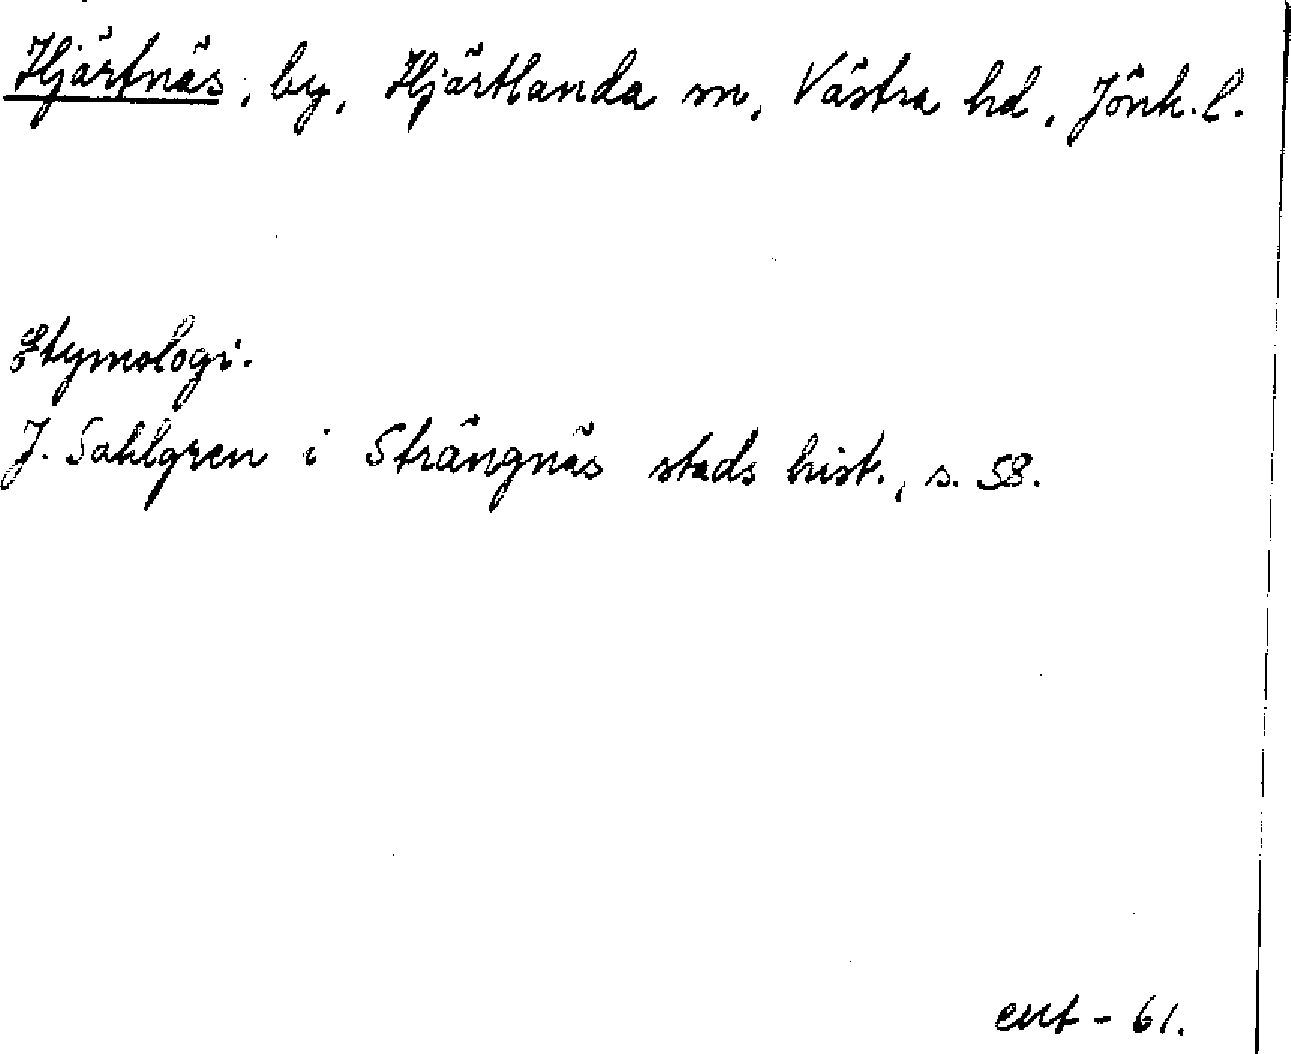 Hjärtnäs, by, Hjärtlanda sn, Västra hd, Jönk. l.
Etymologi.
J. Sahlgren i Strängnäs stads hist., s. 58.
ext - 61.